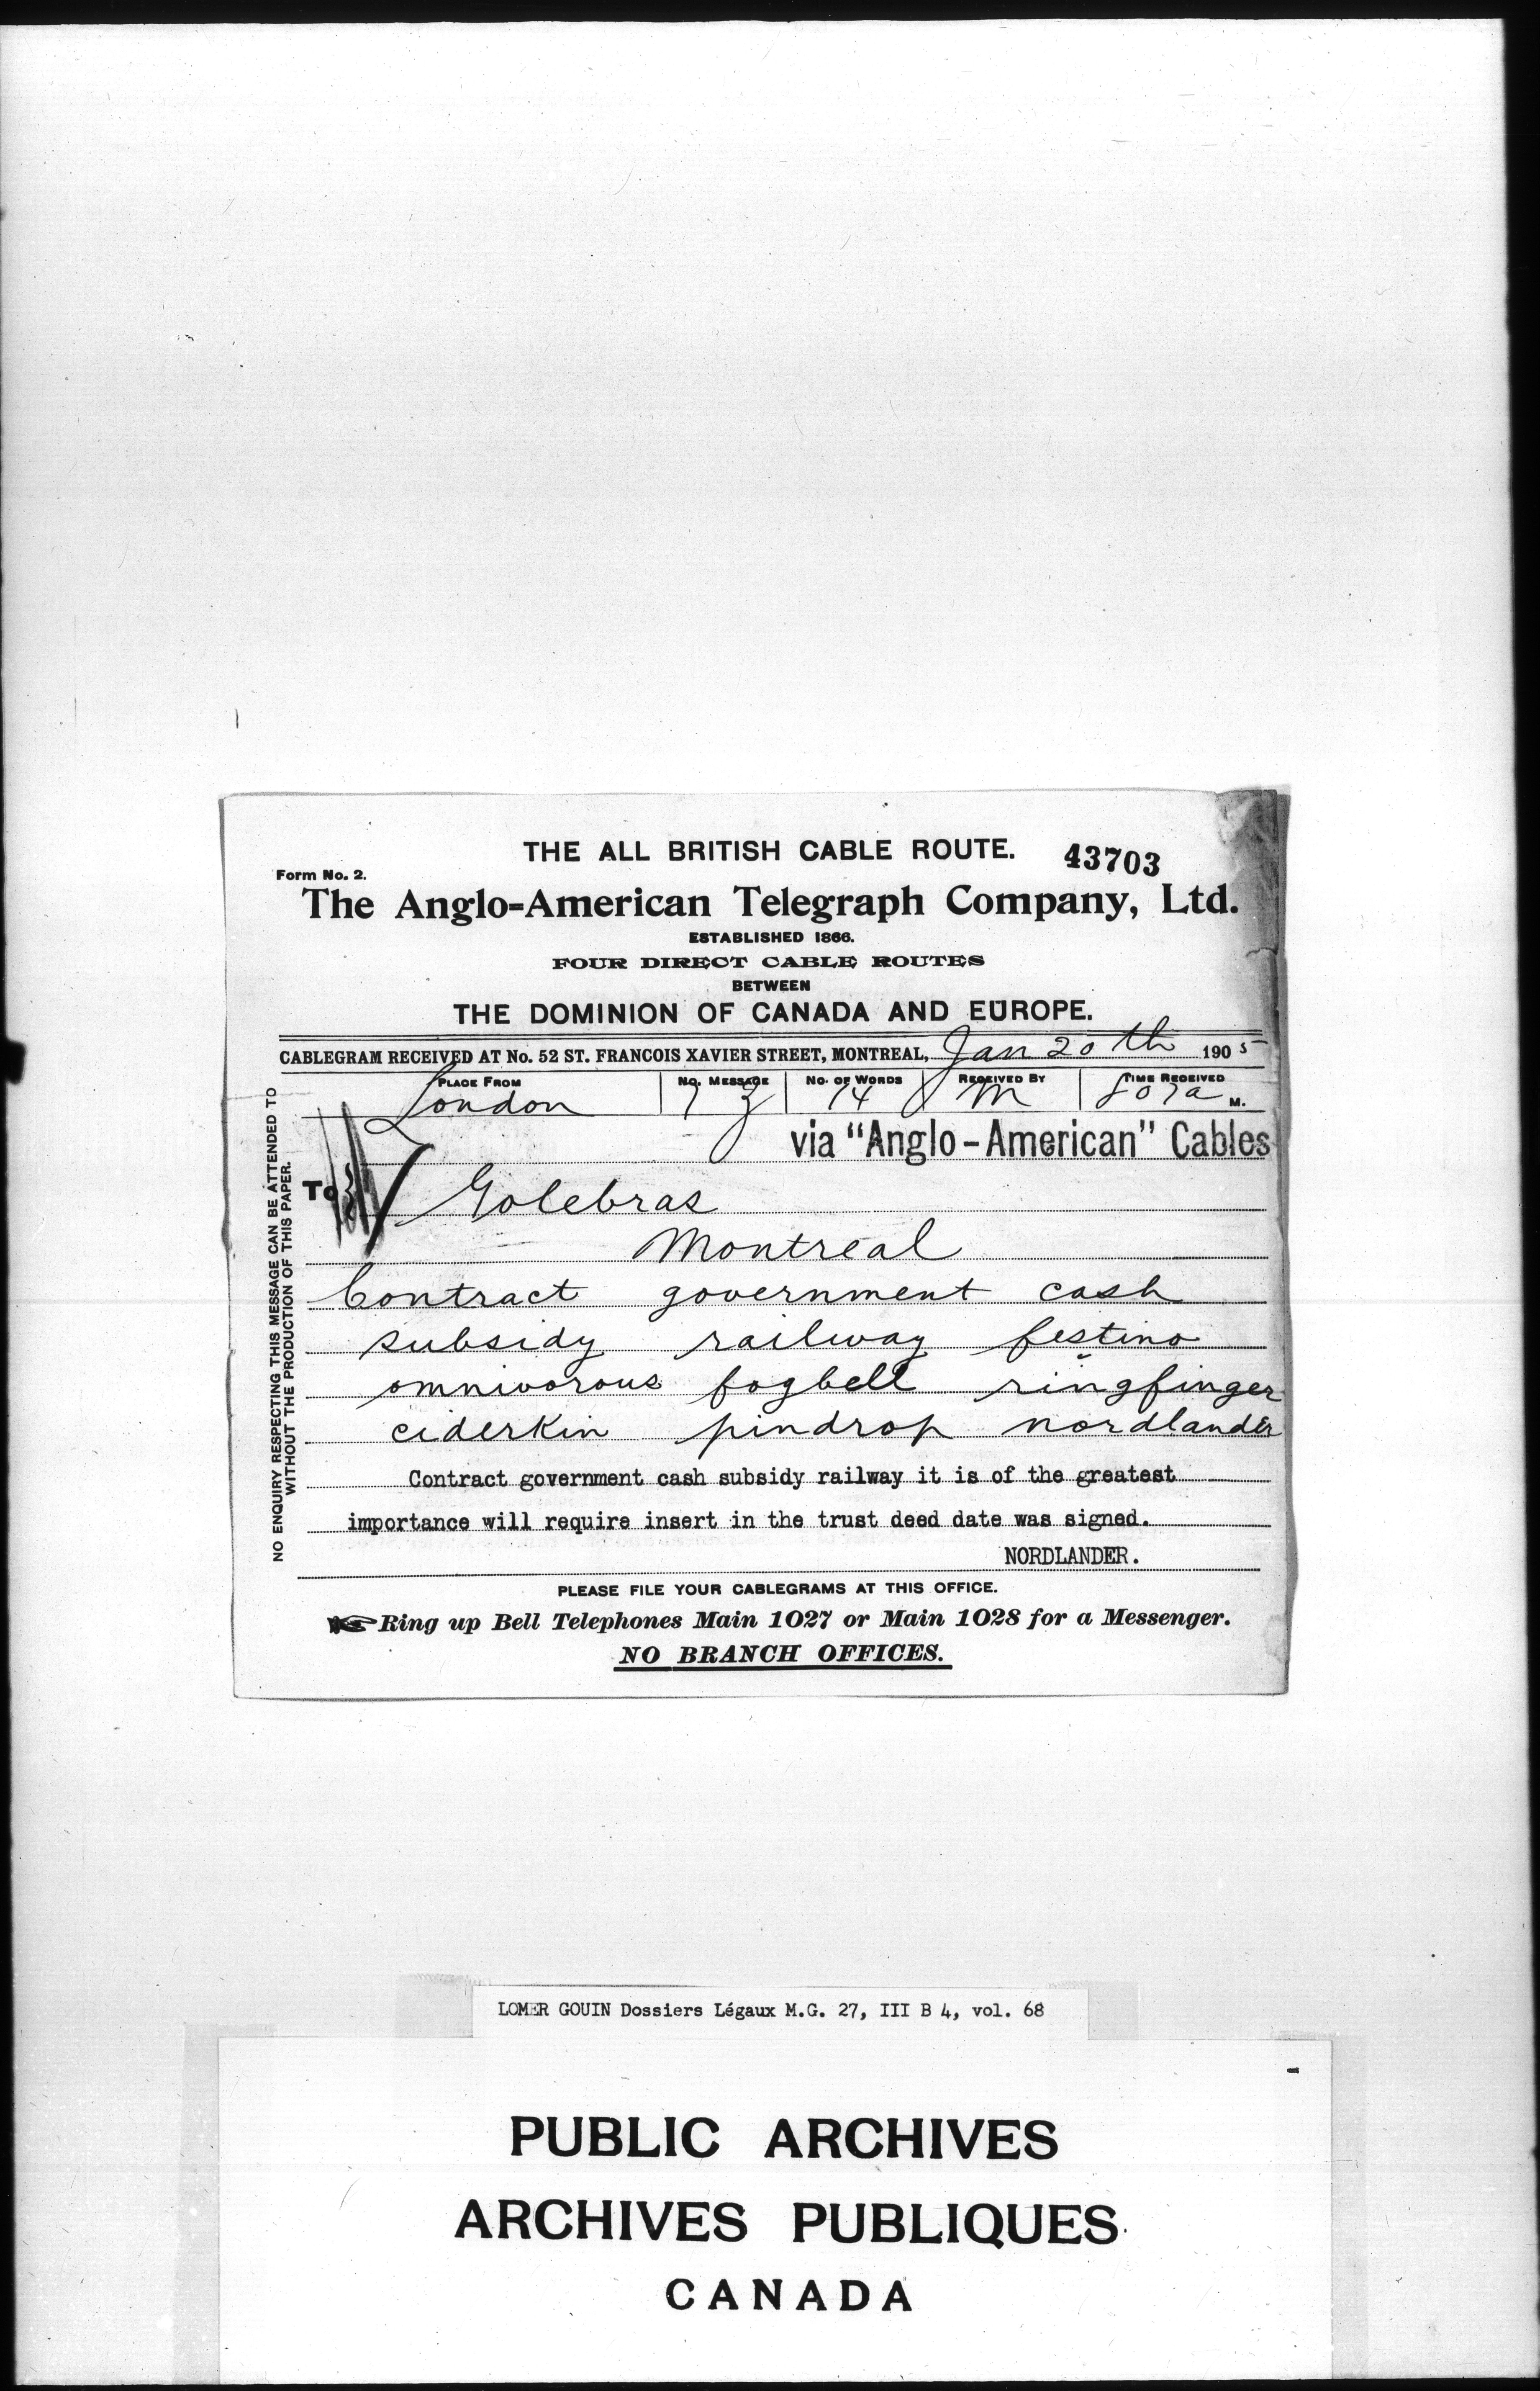 THE ALL BRITISH CABLE ROUTE. 43703
Form No. 2.
The Anglo=American Telegraph Company, Ltd.
ESTABLISHED 1866.
FOUR DIRECT CABLE ROUTES
BETWEEN
THE DOMINION OF CANADA AND EUROPE.
CABLEGRAM RECEIVED AT No. 52 ST. FRANCOIS XAVIER STREET, MONTREAL, Jan 20 th 1905
PLACE FROM No. MESSAGE No. OF WORDS RECEIVED BY TIME RECEIVED
London 14 M M.
via "Anglo-American" Cables
To
Golebras
Montreal
Contract government cash
subsidy railway festino
omnivorous fogbell ringfinger
ciderkin pindrop nordlander
Contract government cash subsidy railway it is of the greatest
importance will require insert in the trust deed date was signed.
NORDLANDER.
PLEASE FILE YOUR CABLEGRAMS AT THIS OFFICE.
Ring up Bell Telephones Main 1027 or Main 1028 for a Messenger.
NO BRANCH OFFICES.
NO ENQUIRY RESPECTING THIS MESSAGE CAN BE ATTENDED TO
WITHOUT THE PRODUCTION OF THIS PAPER.
LOMER GOUIN Dossiers Légaux M.G. 27, III B 4, vol. 68
PUBLIC ARCHIVES
ARCHIVES PUBLIQUES
CANADA